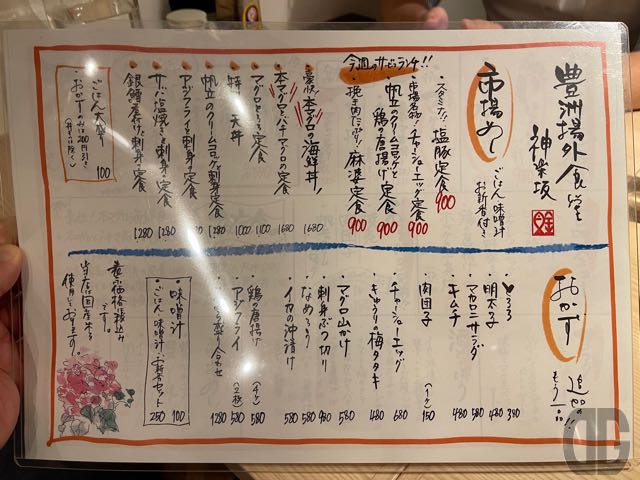 豊洲場外食堂
神楽坂
市場めし
ごはん 味噌汁
お新香付き
今週のサービスランチ!!
・スタミナ!! 塩豚定食 900
・市場名物 チャーシューエッグ定食 900
・帆立のクリームコロッケと
鶏の唐揚げ定食 900
・挽き肉たっぷり! 麻婆定食 900
・豪快 本マグロの海鮮丼! 1680
・本マグロとバチマグロの定食 1680
・マグロとろろ定食 1100
・特 天丼 1000
・帆立のクリームコロッケと刺身定食 1280
・アジフライと刺身定食
・サバ塩焼きと刺身定食 1280
・銀鱈唐付けと刺身定食 1280
・ごはん大盛 100
・おかずのみは200円引き
おかず
追加の!!
もう一品
・とろろ 380
・明太子 480
・マカロニサラダ 580
・キムチ 480
・肉団子 (1ケ) 150
・チャーシューエッグ 680
・きゅうりの梅タタキ 480
・マグロ山かけ 580
・刺身ぶつ切り 980
・なめろう 580
・イカの沖漬け 580
・鶏の唐揚げ 580
・アジフライ (2枚) 580
盛り合わせ 1280
・味噌汁 100
・ごはん 味噌汁 お新香セット 250
表示価格税込み
です。
当店は国産米を
使用しております。
DG